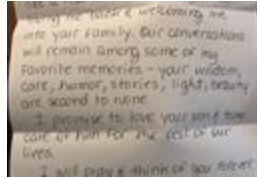 welcoming me
into your family. Our conversations
will remain among some of my
favorite memories - your wisdom,
care, humor, stories, light, beauty
are second to none.
I promise to love your son & take
care of him for the rest of our
lives.
I will pray & think of you forever